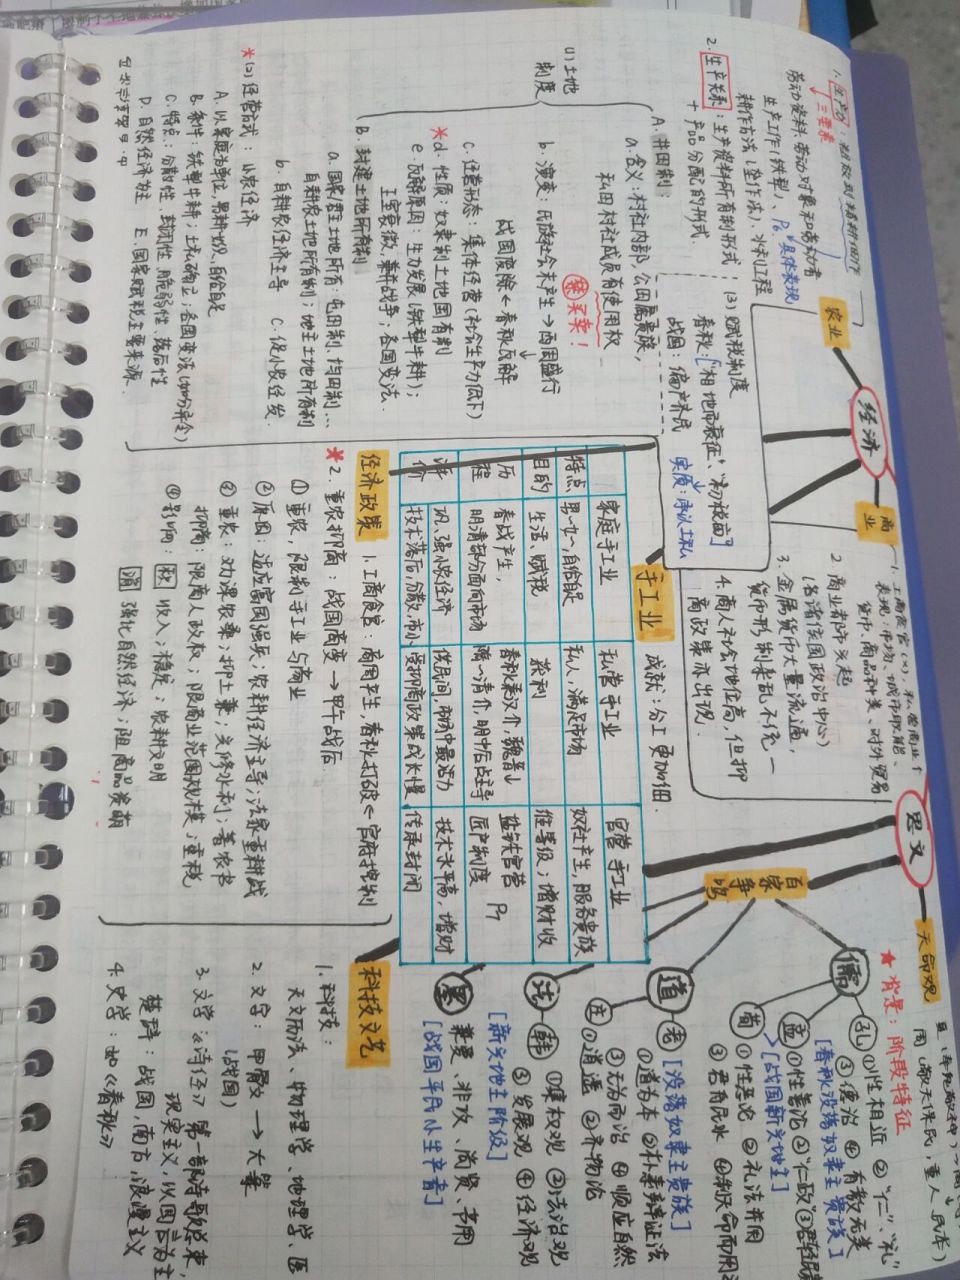 经济
农业
1. 生产力：
三要素
劳动资料、劳动对象和劳动者
生产工作（铁犁，具体表现
耕作方法（垄作法），水利工程
2. 生产关系：生产资料所有制形式；
+ 产品分配的形式.
(1) 土地制度
A. 井田制：
a. 含义：村社内部，公田属贵族，
私田村社成员有使用权
禁买卖！
b. 演变：氏族社会末产生→西周盛行
战国废除←春秋瓦解
c. 经营形态：集体经营（社会生产力低下）
*d. 性质：奴隶制土地国有制
e. 瓦解原因：生力发展（铁犁牛耕）；
王室衰微，兼并战争；各国变法.
B. 封建土地所有制
a. 国家/君主土地所有：屯田制、均田制…
自耕农土地所有制；地主土地所有制
b. 自耕农经济主导 C. 促小农经发
*(2) 经营方式：小农经济
A. 以家庭为单位，男耕女织、自给自足
B. 条件：铁犁牛耕；土私确立；各国变法（如分异令）
C. 特点：分散性 封闭性 脆弱性 落后性
D. 自然经济为主 E. 国家赋税主要来源.
(3) 赋税制度
春秋：“相地而衰征”、“初税亩”
实质：承认土私
战国：偏户齐民
商业
2. 商业都市兴起
（各诸侯国政治中心）
3. 金属货币大量流通，
货币形制杂乱不统一
4. 商人社会地位高，但抑
商政策亦出现.
手工业 成就：分工更加细.
家庭手工业 私营手工业 官营手工业
特点 男女，自给自足 私人，满足市场 奴社产生，服务贵族
目的 生活、赋税 获利 维等级；增财收
历程 春战产生， 春秋兼汉介，魏晋 盐铁官营
明清部分面向市场 隋→清介，明中后占主导 匠户制度
评价 巩，强小农经济 优民间，商场中最活力 技术水平高，增财
技术落后，分散，市小 受抑商政策成长慢 传承封闭
经济政策
1. 工商食官：商周产生，春秋打破←官府垄制
*2. 重农抑商：战国商变→甲午战后
① 重农，限制手工业与商业
② 原因：适应富国强兵；农耕经济主导；法家重耕战
③ 重农：劝课农桑；抑土兼；兴修水利；着农书
抑商：限商人政权；限商业范围规模；重税
④ 影响：积 收入；稳发；农耕文明
消 强化自然经济；阻商品萌
思文
天命观
百家争鸣
*背景：阶段特征
儒
孔 ①性相近 ②“仁”、“礼”
③德治 ④有教无类
[春秋没落奴隶主贵族]
孟 ①性善论 ②“仁政” ③君轻民
[战国新兴地主]
荀 ①性恶论 ②礼法并用
③君舟民水 ④制天命而用
道
老 [没落奴隶主贵族]
①道为本 ②朴素辩证法
③无为而治 ④顺应自然
庄 ①逍遥 ②齐物论
法 韩 ①集权观 ②法治观
③发展观 ④经济观
[新兴地主阶级]
墨 兼爱、非攻、尚贤、节用
[战国平民小生产者]
科技文艺
1. 科技：
天文历法、物理学、地理学、医
2. 文字：甲骨文→大篆
（战国）
3. 文学：《诗经》第一部诗歌总集，
现实主义，以四言为主
楚辞：战国，南方，浪漫主义
4. 史学：如《春秋》